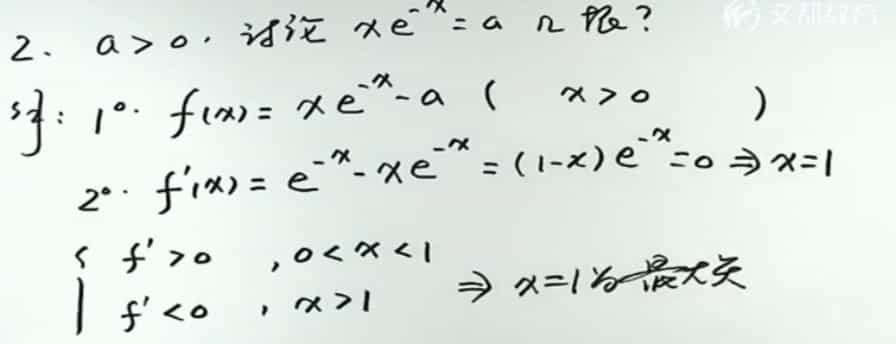 文都教育
2. a>0. 讨论 xe⁻ˣ=a 几根?
解: 1°. f(x)=xe⁻ˣ-a ( x>0 )
2°. f'(x)=e⁻ˣ-xe⁻ˣ=(1-x)e⁻ˣ=0⇒x=1
{ f'>0 , 0<x<1
f'<0 , x>1 ⇒ x=1为最大点